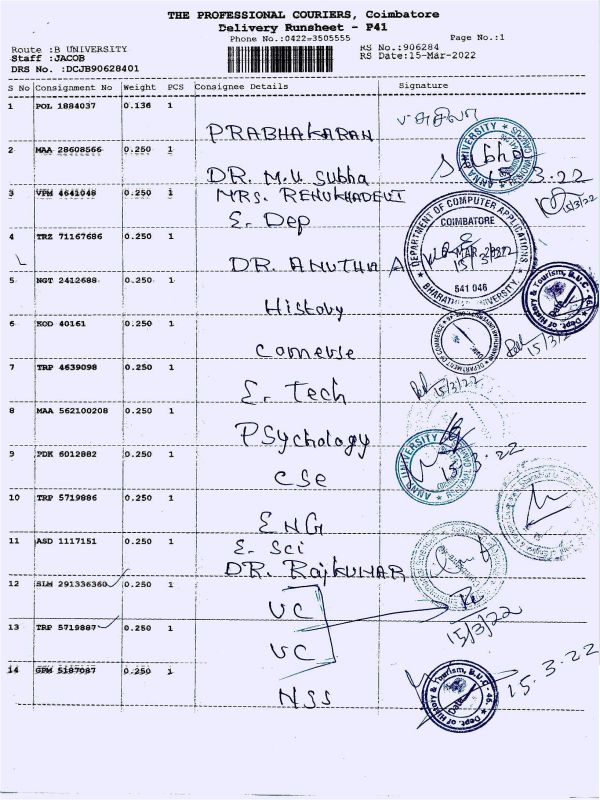 THE PROFESSIONAL COURIERS, Coimbatore
Delivery Runsheet - P41
Phone No.:0422=3505555 Page No.:1
Route :B UNIVERSITY RS No.:906284
Staff :JACOB RS Date:15-Mar-2022
DRS No. :DCJB90628401
S No Consignment No Weight PCS Consignee Details Signature
1 POL 1884037 0.136 1
PRABHAKARAN
2 MAA 28608566 0.250 1
DR. M.V Subha 15.3.22
3 VPM 4641048 0.250 1 MRS. RENUKHADEVI
E. Dep 15/3/22
4 TRZ 71167686 0.250 1
DR. ANUTHA A 15/3/2022
DEPARTMENT OF COMPUTER APPLICATIONS
COIMBATORE
641 046
5 NGT 2412688 0.250 1
History
Dept. of History & Tourism, B.U.C - 46.
6 EOD 40161 0.250 1
Comerse 15/3/22
DEPARTMENT OF COMMERCE
7 TRP 4639098 0.250 1
E. Tech 15/3/22
8 MAA 562100208 0.250 1
PSychology
ANNA UNIVERSITY
9 PDK 6012882 0.250 1
CSe 15.3.22
10 TRP 5719886 0.250 1
ENG
11 ASD 1117151 0.250 1 E. Sci
DR. RajKUMAR
12 SLM 291336360 0.250 1
VC
15/3/22
13 TRP 5719887 0.250 1
VC
14 GPM 5187087 0.250 1
NSS 15.3.22
Dept. of History & Tourism, B.U.C - 46.